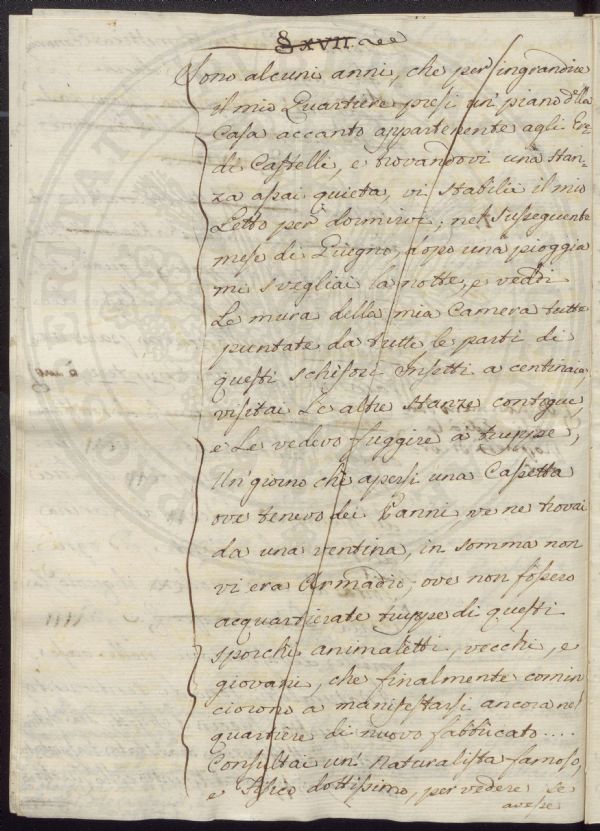 § XVII.
Sono alcuni anni, che per ingrandire
il mio Quartiere presi un' piano della
Casa accanto appartenente agli Er:
di Castelli, e trovandovi una stan-
za assai quieta, vi stabilìi il mio
Letto per dormirvi; nel susseguente
mese di Giugno, dopo una pioggia
mi svegliai la notte, e veddi
Le mura della mia Camera tutte
puntate da tutte le parti di
questi schifosi Insetti a centinaia,
visitai Le altre stanze contogue,
e Le vedevo fuggire a truppe;
Un' giorno che apersi una Cassetta
ove tenevo dei Panni, ve ne trovai
da una ventina, in somma non
vi era Armadio, ove non fossero
acquartierate truppe di questi
sporchi animaletti, vecchi, e
giovani, che finalmente comin
ciorono a manifestarsi ancora nel
quartiere di nuovo fabbricato....
Consultai un' Naturalista famoso,
e Fisico dottissimo, per vedere se
avesse